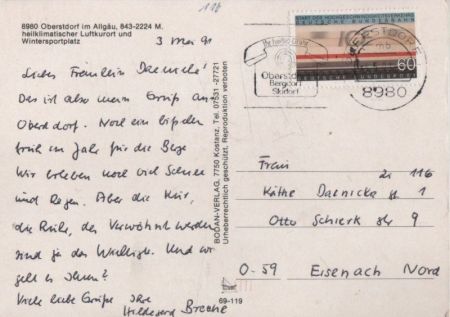 118
8980 Oberstdorf im Allgäu, 843-2224 M.
heilklimatischer Luftkurort und
Wintersportplatz
3 Mai 91
Liebes Fräulein Daenicke!
Das ist also mein Gruß aus
Oberstdorf. Noch ein bißchen
früh im Jahr für die Berge
Wir erleben noch viel Schnee
und Regen. Aber die Kur,
die Ruhe, das Verwöhnt werden
sind ja das Wichtigste. Und wie
geht es Ihnen?
Viele liebe Grüße Ihre
Hildegard
BODAN-VERLAG, 7750 Konstanz, Tel. 07531-27721
Urheberrechtlich geschützt, Reproduktion verboten
69-119
START DES HOCHGESCHWINDIGKEITSVERKEHRS
DEUTSCHE BUNDESBAHN
60
Oberstdorf
Bergdorf
Skidorf
OBERSTDORF
mb
8980
Frau
Zi 116
Käthe Daenicke
Otto Schierk Str 9
O-59 Eisenach Nord